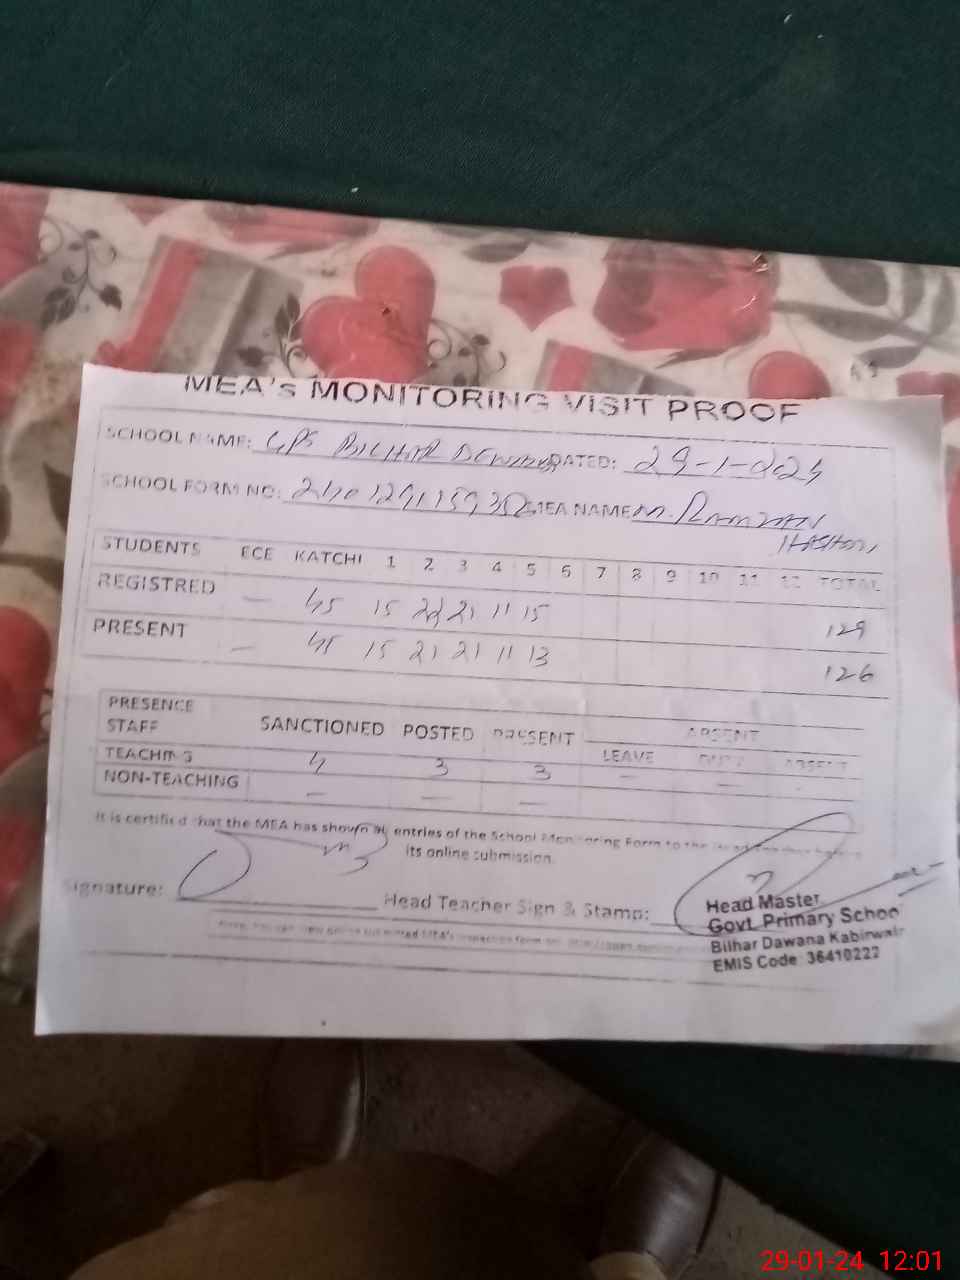 MEA's MONITORING VISIT PROOF
SCHOOL NAME: GPS BILHAR DATED: 29-1-2024
SCHOOL FORM NO: MEA NAME M. RAMZAN
STUDENTS ECE KATCHI 1 2 3 4 5 6 7 8 9 10 11 12 TOTAL
REGISTRED — 45 15 22 21 11 15 129
PRESENT — 45 15 21 21 11 13 126
PRESENCE
STAFF SANCTIONED POSTED PRESENT ABSENT
LEAVE DUTY ABSENT
TEACHING 4 3 3 — — -
NON-TEACHING — — —
It is certified that the MEA has shown all entries of the School Monitoring Form to the Head Teacher before
its online submission.
Signature: Head Teacher Sign & Stamp:
Head Master
Govt. Primary School
Bilhar Dawana Kabirwala
EMIS Code 36410222
29-01-24 12:01